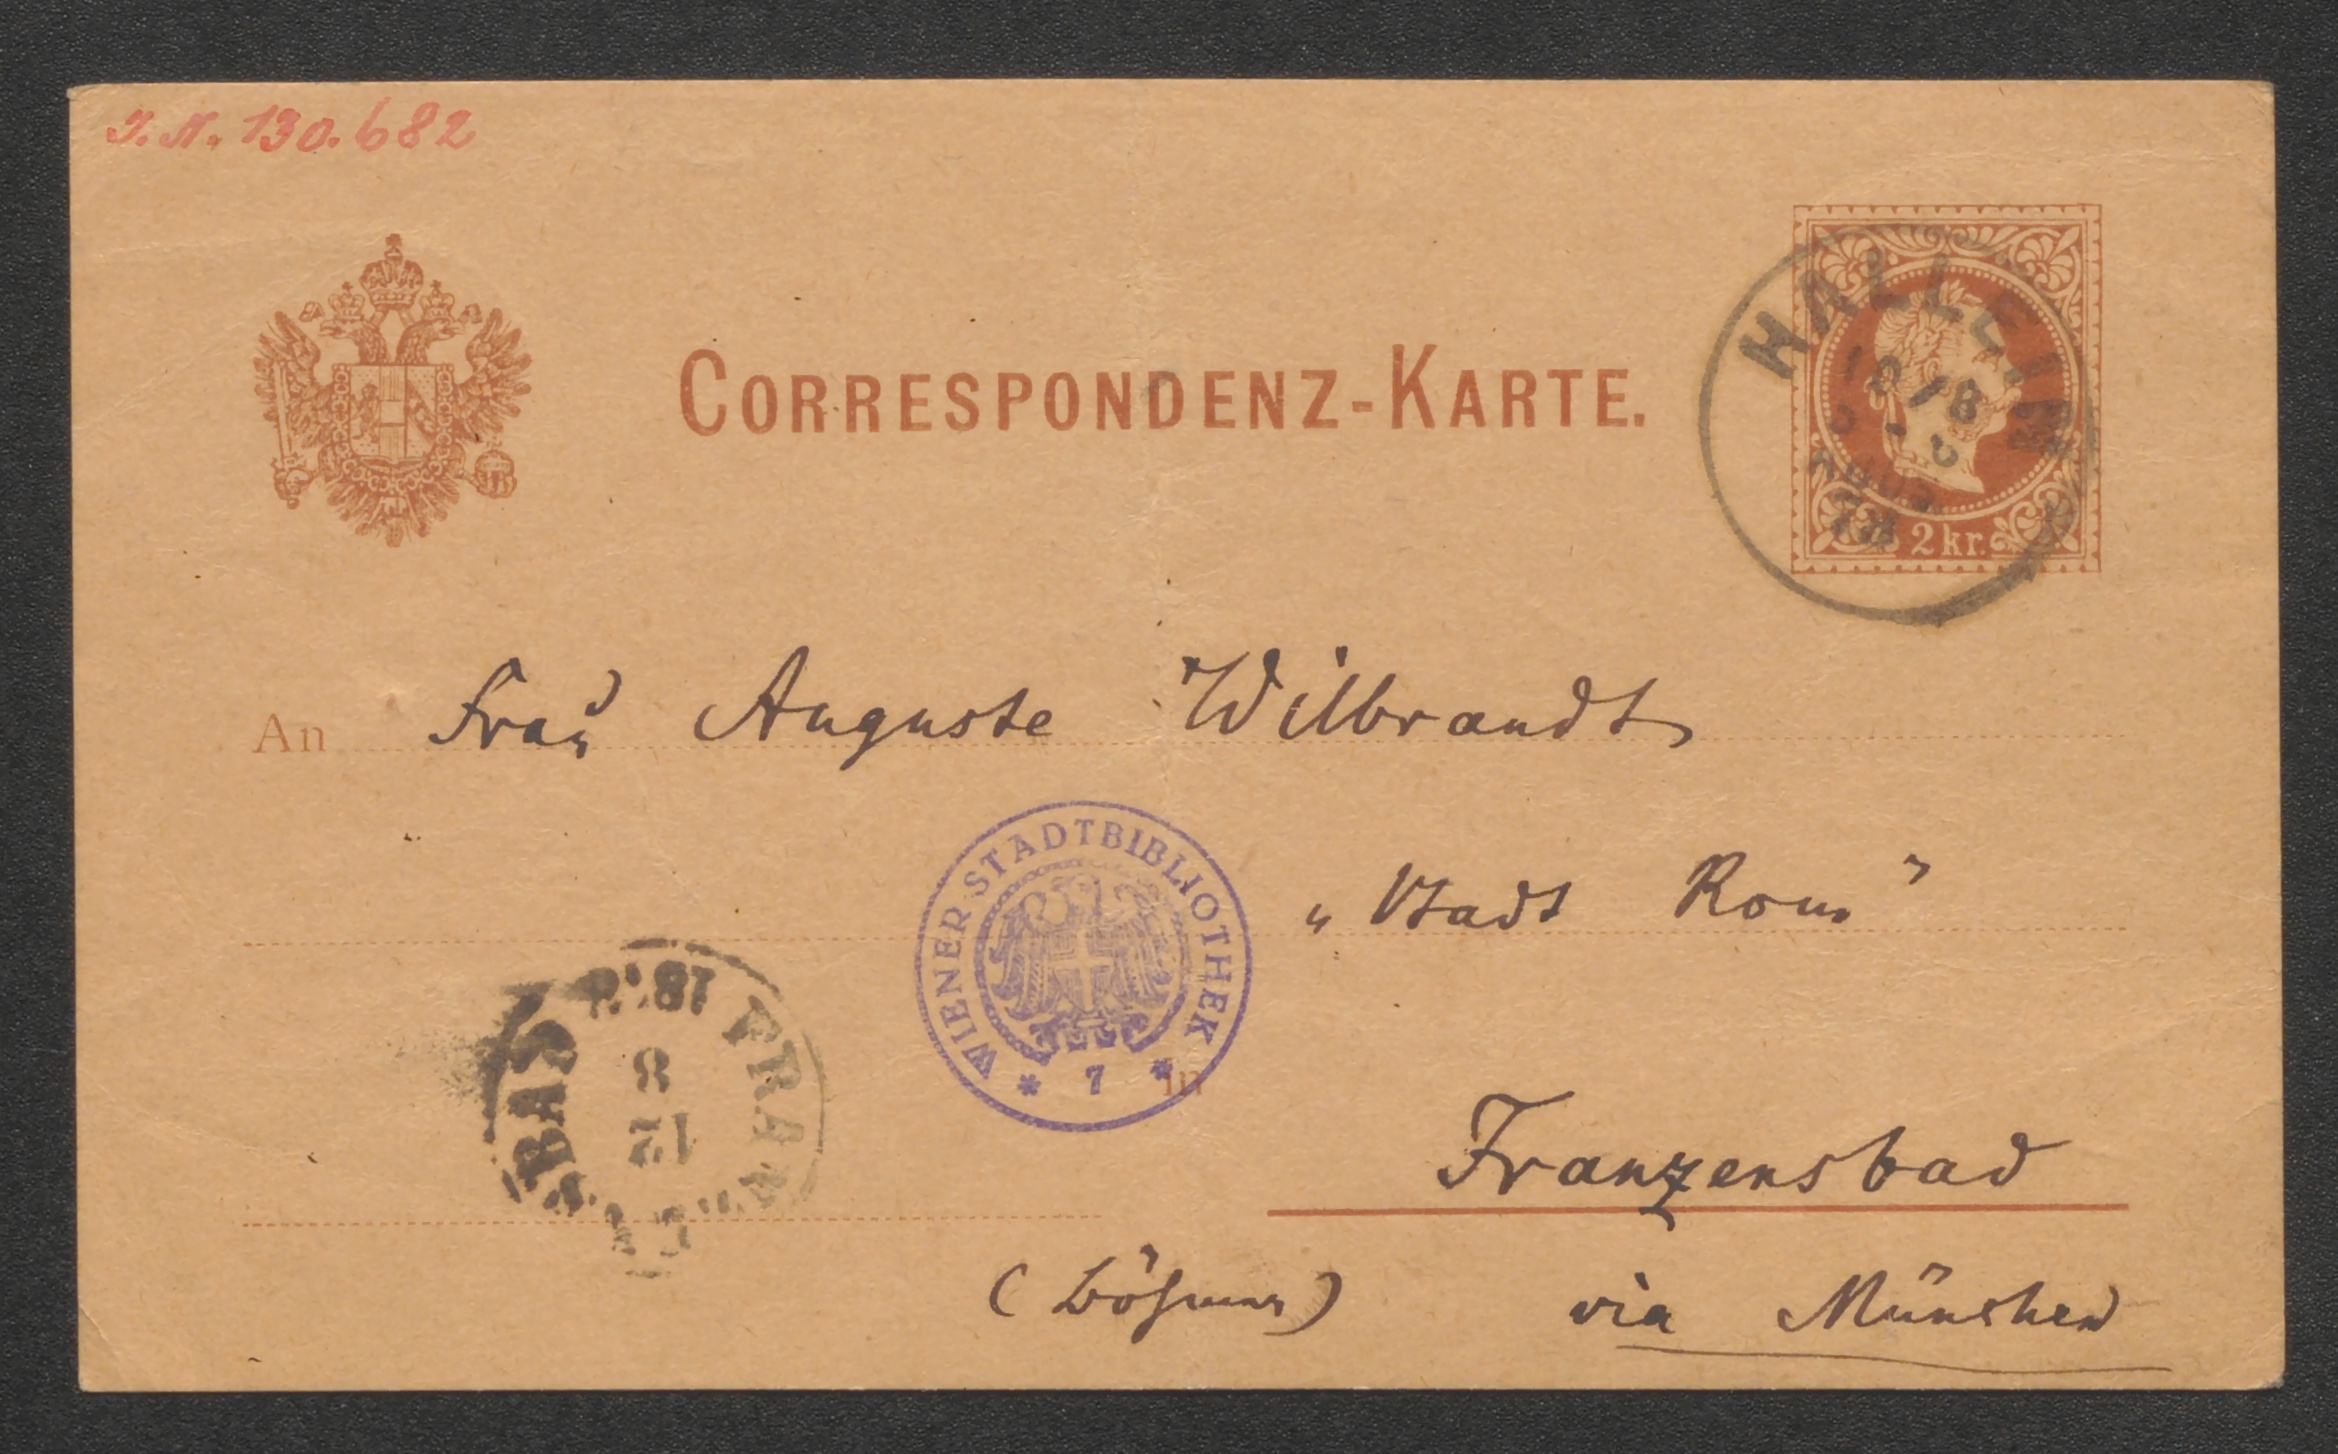 I.N. 130.682
CORRESPONDENZ-KARTE.
HALLEIN
2 kr.
An Frau Auguste Wilbrandt
„Stadt Rom"
WIENER STADTBIBLIOTHEK
* 7 *
in
Franzensbad
(Böhmen) via München
12
8